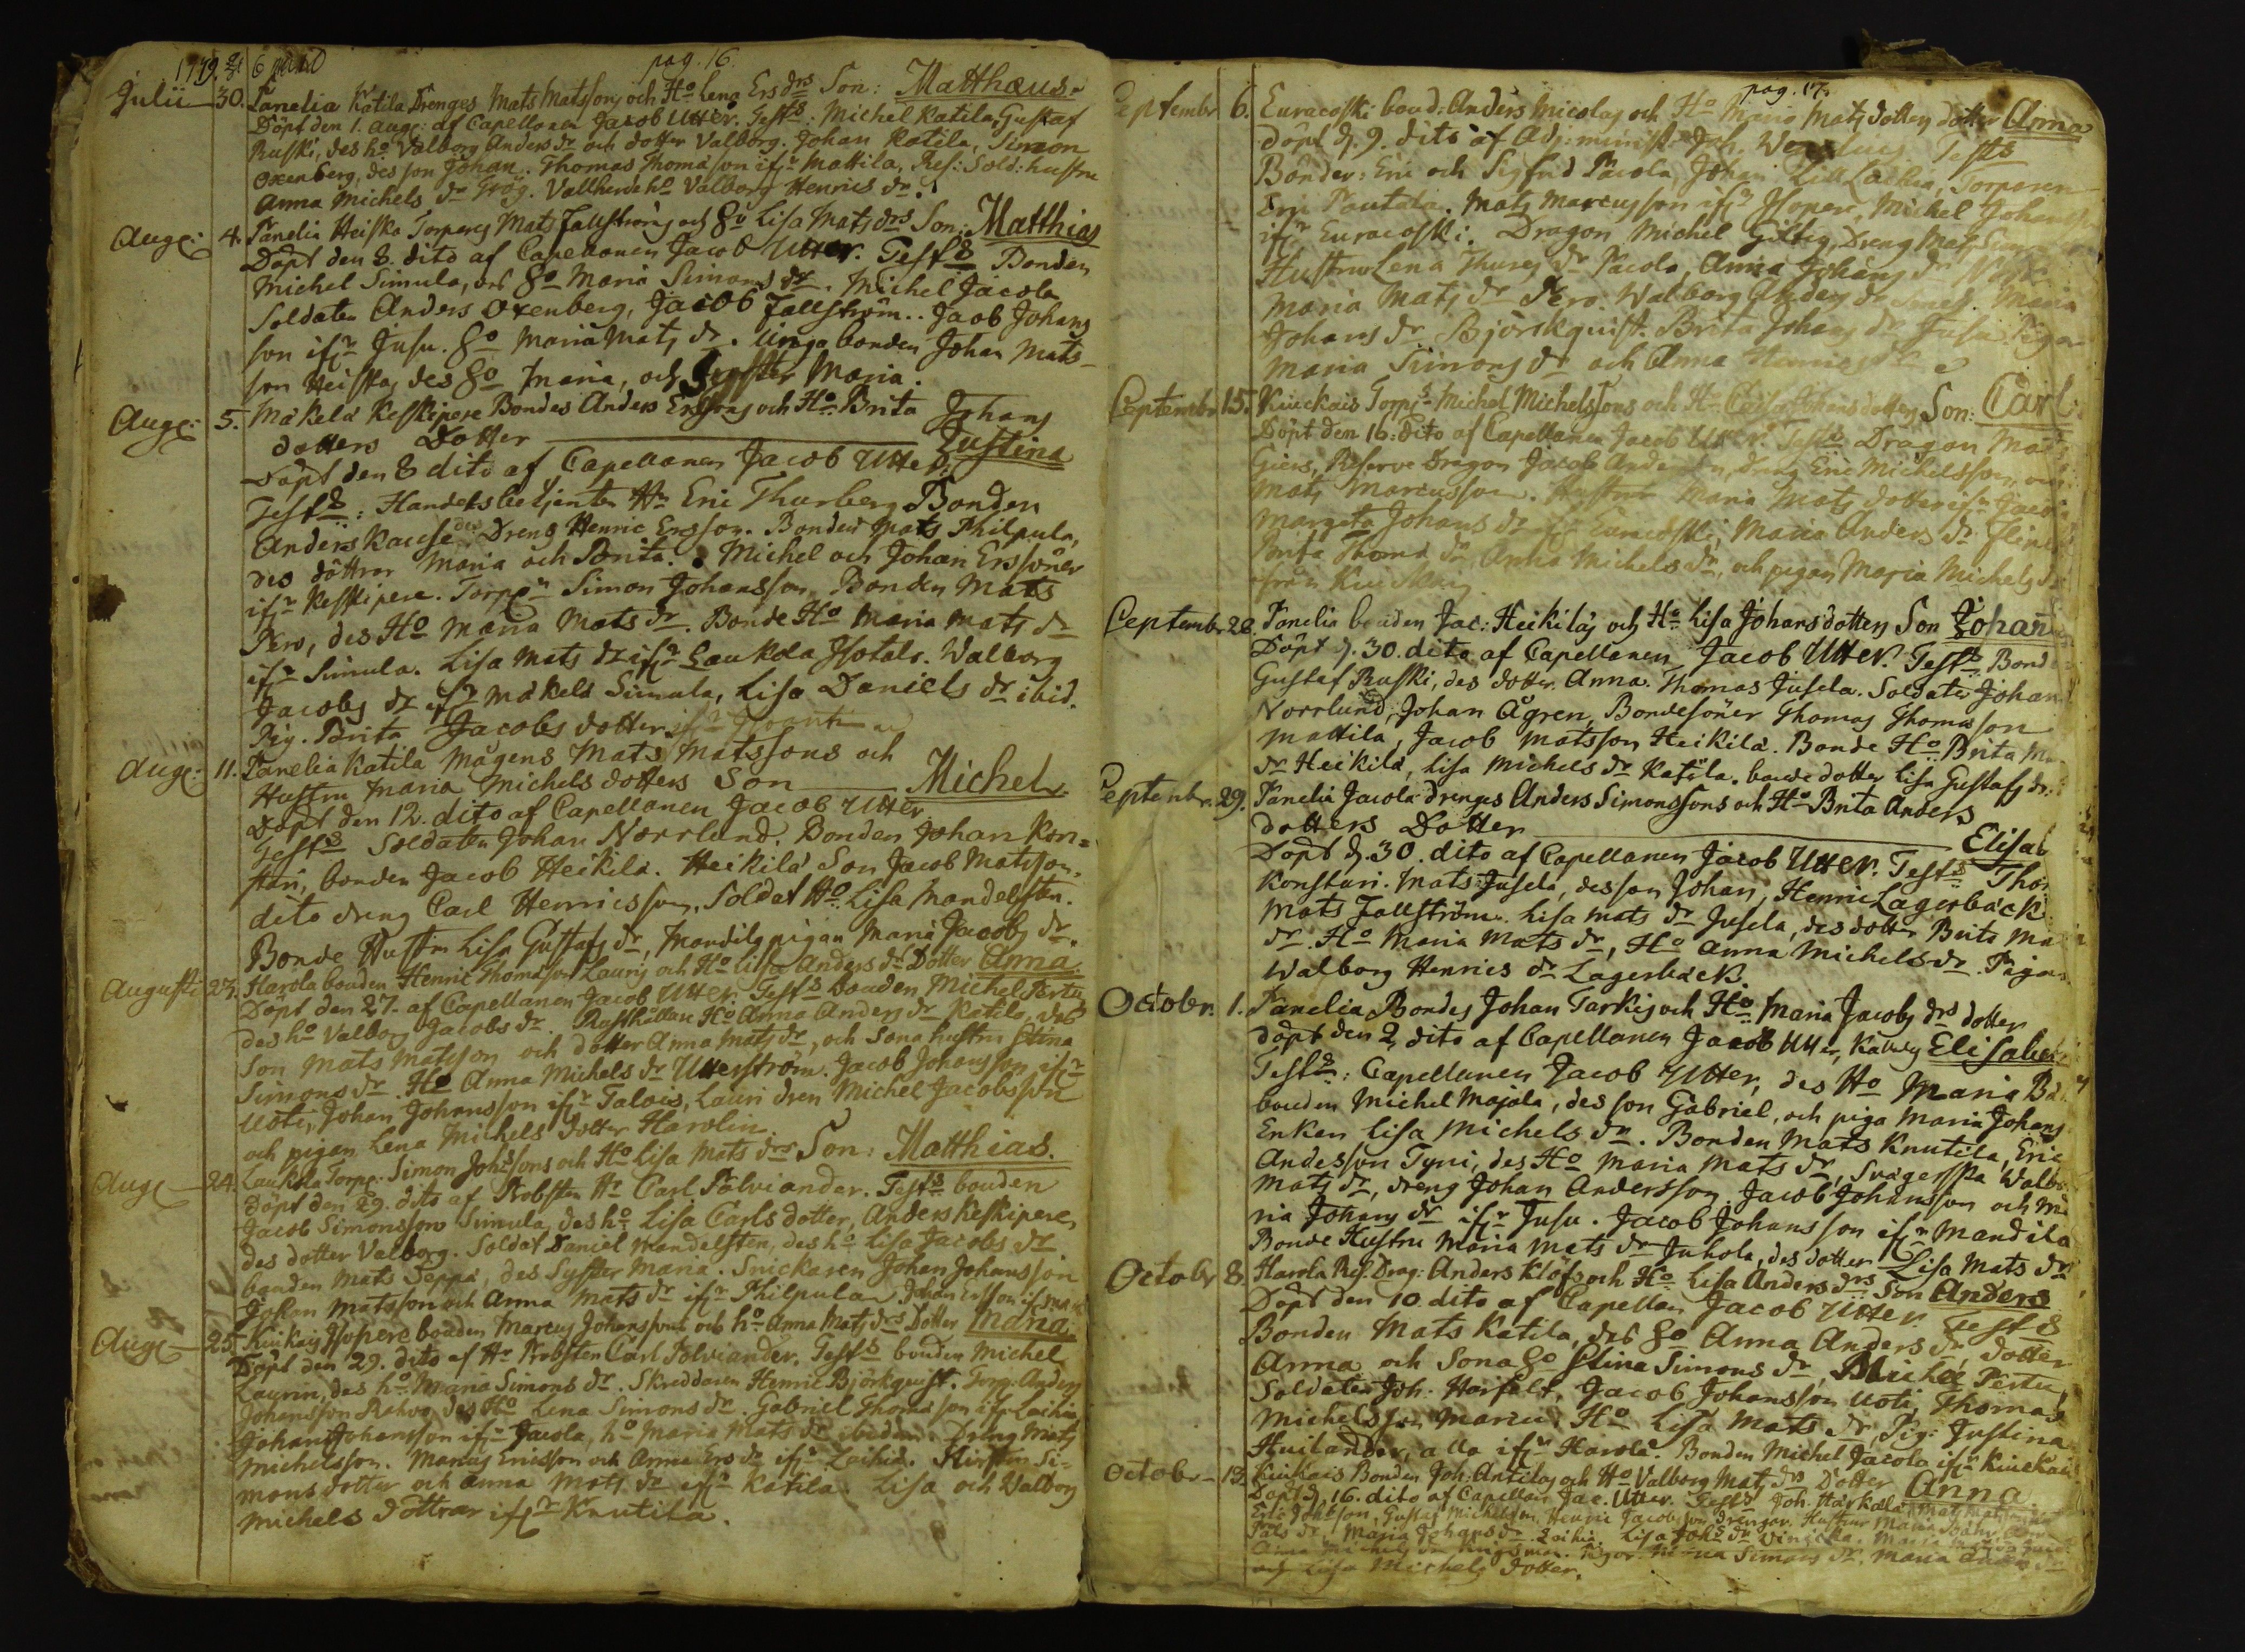 pag. 16.
Julii 30. Panelia Katila Drenges Mats Matsson och Ho Lena Ersdrs Son: Matthæus.
Döpt den 1. aug: af Capellanen Jacob Utter. Tests: Michel Katila, Gustaf
Ruski, des ho Valborg Anders dr och dotter Valborg. Johan Katila, Simon
Oxenberg, des son Johan. Thomas Thomasson ifr Mattila, Res: Sold: hustru
Anna Michels dr Vallherde ho Valborg Henrics dr.
Aug: 4. Panelia Heiska Torpens Mats Fallströms och Ho Lisa Mats drs Son: Matthias
Döpt den 8. dito af Capellanen Jacob Utter. Tests Bonden
Michel Simula, des Ho Maria Simons dr. Michel Jacola
Soldaten Anders Oxenberg, Jacob Fallström.. Jacob Johans
son ifr Jusu. Ho Maria Mats dr. unga bonden Johan Mats-
son Heiska, des Ho Maria, och Syster Maria.
Aug: 5. Mäkelä Keskipere Bondes Anders Erssons och Ho Brita Johans
dotters Dotter Justina
Döpt den 8 dito af Capellanen Jacob Utter.
Tests: Handelsbetjenten Hr Eric Thurberg Bonden
Anders Kause des Dreng Henric Ersson. Bonden Mats Philpula,
des döttrar Maria och Brita. Michel och Johan Erssöner
ifr Keskipere. Torpen Simon Johansson, Bonden Mats
Pero, des Ho Maria Mats dr. Bonde Ho Maria Mats dr
ifr Simula. Lisa Mats dr ifr Laukola Isotalo. Walborg
Jacobs dr ifr Mäkelä Simula, Lisa Daniels dr ibid.
Pig. Brita Jacobs dotter
Aug: 11. Panelia Katila Mågens Mats Matssons och
Hustru Maria Michels dotters Son Michel
Döpt den 12. dito af Capellanen Jacob Utter
Tests Soldaten Johan Norrlund. Bonden Johan Kon=
stari, bonden Jacob Heikilä. Heikilä Son Jacob Matsson.
dito dreng Carl Henricsson. Soldat Ho Lisa Mandelsten.
Bonde Hustru Lisa Gustafs dr, Mandila pigan Maria Jacobs dr.
Augusti 23. Harola bonden Henric Thomasson Lauris och Ho Lisa Anders drs Dotter Anna
Döpt den 27. af Capellanen Jacob Utter. Tests bonden Michel Pertu,
des ho Valborg Jacobs dr. Rusthållare Ho Anna Anders dr Katila, des
Son Mats Matsson och dotter Anna Mats dr, och Sona hustru Stina
Simons dr. Ho Anna Michels dr Utterström. Jacob Johansson ifr
Uoti, Johan Johansson ifr Talois, Lauri dren Michel Jacobsson
och pigan Lena Michels dotter Harolin.
Aug 24. Laukola Torp: Simon Johssons och Ho Lisa Mats drs Son: Matthias.
Döpt den 29. dito af Probsten Hr Carl Polviander. Tests bonden
Jacob Simonsson Simula, des ho Lisa Carls dotter, Anders Keskipere,
des dotter Valborg. Soldat Daniel Mandelsten, des ho Lisa Jacobs dr.
bonden Mats Seppä, des Syster Maria. Snickaren Johan Johansson
Johan Matsson och Anna Mats dr ifr Philpula Johan Ersson
Aug 25. Kiukais Isopere bonden Marcus Johanssons och ho Anna Mats drs Dotter Maria
Döpt den 29. dito af Hr Probsten Carl Polviander. Tests bonden Michel
Laurin, des ho Maria Simons dr. Skreddaren Henric Björkqvist. Torp: Anders
Johansson Rahvo, des Ho Lena Simons dr. Gabriel Thomasson ifr Laihia
Johan Johansson ifr Jacola, ho Maria Mats dr ibidem. Dreng Mats
Michelsson. Marcus Ericsson och Anna Ers dr ifr Laihia. Kirstin Si-
mons dotter och Anna Mats dr ifr Katila. Lisa och Valborg
Michels döttrar ifr Knutila.
pag. 17.
Septembr 6. Euracoski bond. Anders Micolas och Ho Maria Mats dotters dotter Anna
döpt d. 9. dito af Adj: minist: Joh. Tests
Bönder: Eric och Sigfrid Pacola, Johan Lill Laihia, Torparen
Eric Pautala. Mats Marcusson ifr Isoper, Michel Johans
ifr Euracoski. Dragon Michel Giltig, Dreng Mats
Hustru Lena Thures dr Pacola, Anna Johans dr
Maria Mats dr Pero. Walborg Anders dr Maria
Johans dr Björkquist. Brita Johans dr Jusu Pigan
Maria Simons dr och Anna Henrics dr
Septembr 15. Kiuckais Torp: Michel Michelssons och Ho Caisa Johans dotters Son: Carl
Döpt den 16. dito af Capellanen Jacob Utter. Tests Dragon Mats
Giers, Reserve Dragon Jacob Andersson, dreng Eric Michelsson, och
Mats Marcusson. Hustrur Maria Mats dotter ifr Jacola
Margeta Johans dr ifr Euracoski, Maria Anders dr
Brita Thomas dr Anna Michels dr, och pigan Maria Michels dr
ifrån Kiuckais
Septembr 28. Panelia bonden Jac: Heikiläs och Ho Lisa Johans dotters Son Johan
Döpt d. 30. dito af Capellanen Jacob Utter. Tests Bonden
Gustaf Ruski, des dotter Anna. Thomas Jusela. Soldaten Johan
Norrlund, Johan Ågren, Bondesöner Thomas Thomasson
Mattila, Jacob Matsson Heikilä. Bonde Ho Brita
dr Heikilä, Lisa Michels dr Katila. bonde dotter Lisa Gustafs dr.
Septembr. 29. Panelia Jacola drenges Anders Simonssons och Ho Brita Anders
dotters Dotter Elisab
Döpt d. 30. dito af Capellanen Jacob Utter. Tests
Konstari. Mats Jusela, des son Johan, Henric Lagerbäck
Mats Fallström. Lisa Mats dr Jusela, des dotter Brita
dr. Ho Maria Mats dr, Ho Anna Michels dr. Pigan
Walborg Henrics dr Lagerbäck.
Octobr. 1. Panelia Bondes Johan Tarkis och Ho Maria Jacobs drs dotter
döpt den 2 dito af Capellanen Jacob Utter, Kallas Elisabet
Tests: Capellanen Jacob Utter, des Ho Maria
bonden Michel Majala, des son Gabriel, och piga Maria Johans
Enkan Lisa Michels dr. Bonden Mats Knutila, Eric
Andersson Tyni, des Ho Maria Mats dr, Svägerska Walb
Mats dr, dreng Johan Andersson. Jacob Johansson och Ma
ria Johans dr ifr Jusu. Jacob Johansson ifr Mandila
Bonde Hustru Maria Mats dr Juhola, des dotter Lisa Mats dr
Octobr 8. Harola Res. Drag: Anders Klöfs och Ho Lisa Anders drs Son Anders
Döpt den 10. dito af Capellan Jacob Utter Tests
Bonden Mats Katila, des Ho Anna Anders dr, dotter
Anna och Sona Ho Stina Simons dr, Michel Pertu,
Soldaten Joh. Harfelt, Jacob Johansson Uoti, Thomas
Michelsson Ho Lisa Mats dr, Pig: Justina
Huilander, alla ifr Harola. Bonden Michel Jacola ifr Kiuckais
Octobr 13. Kiukais Bonden Joh: Antilas och Ho Valborg Mats drs Dotter Anna
Döpt d. 16. dito af Capellan Jac. Utter. Tests Joh. Härkälä
Eric Johsson, Gustaf Michelsson, Henric Jacobsson drengar. Hustrur Maria
Maria Johans dr Laihia, Lisa Johs dr
Anna Michels dr Simons dr, Maria
och Lisa Michels dotter.